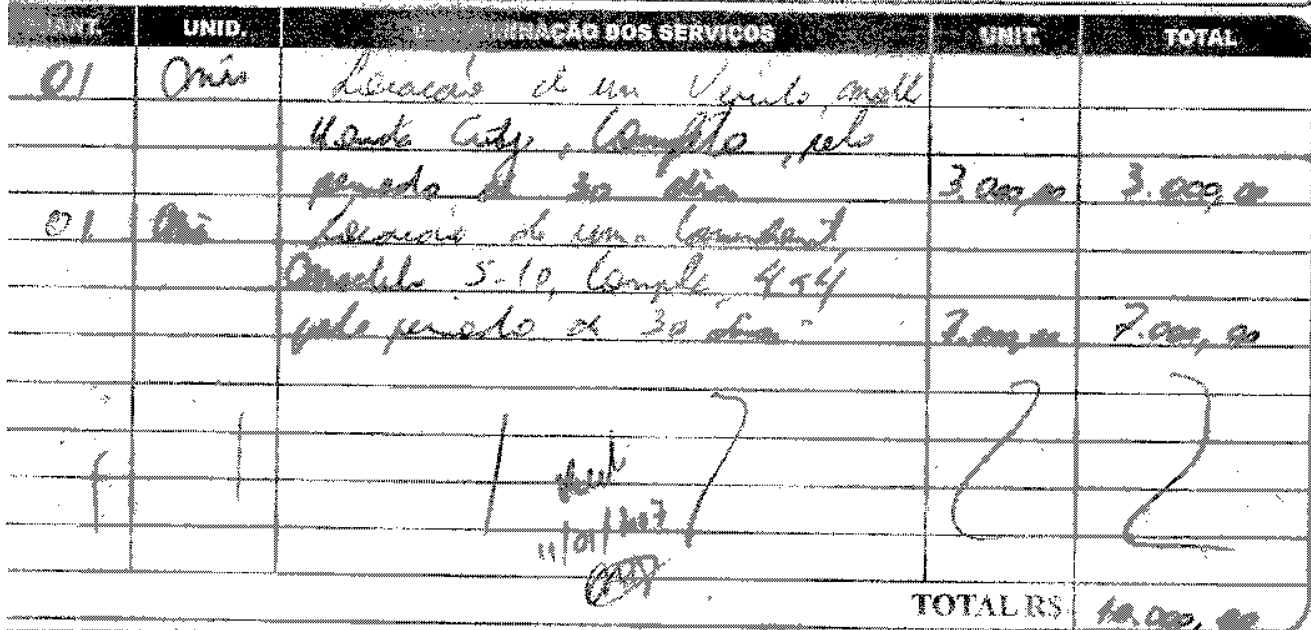 UNID. DISCRIMINAÇÃO DOS SERVIÇOS UNIT. TOTAL
01 Mês Locação de um Veiculo,
Honda City, Completo, pelo
periodo de 30 dias 3.000,00 3.000,00
01 Locação de uma
Modelo S-10, 4x4
pelo periodo de 30 dias 7.000,00 7.000,00
TOTAL R$ 10.000,00